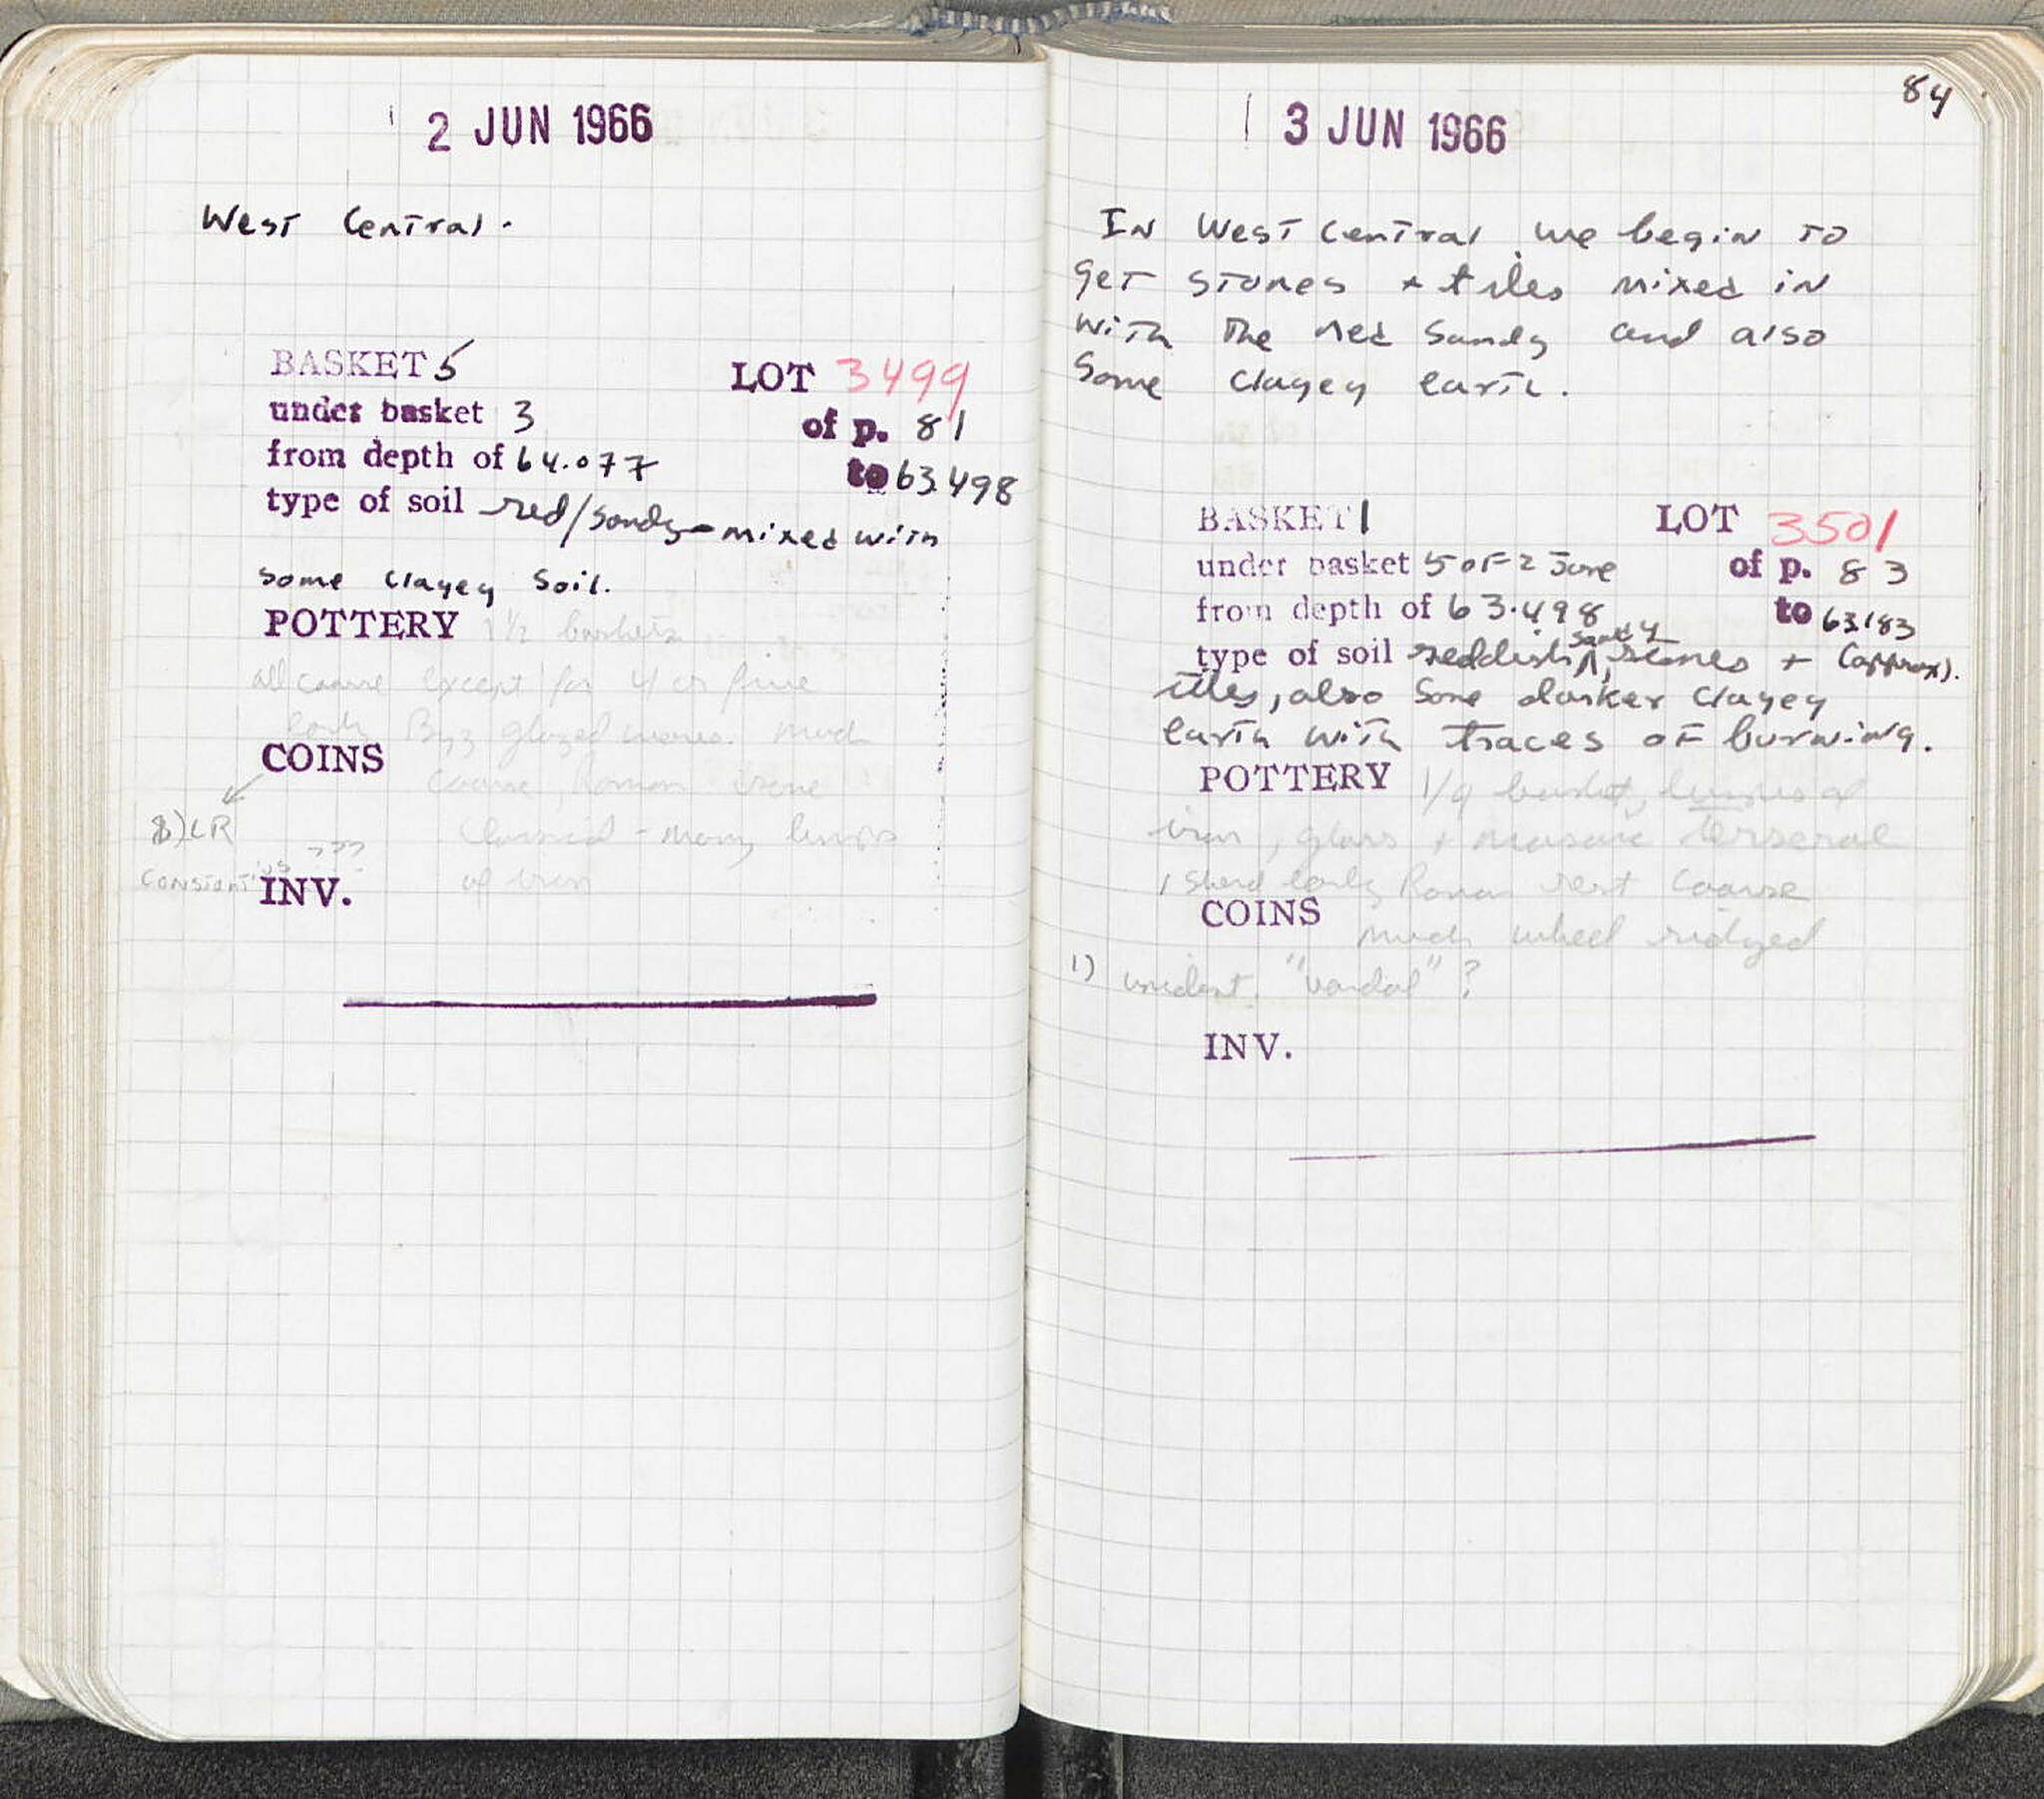 2 JUN 1966
West Central.
BASKET 5 LOT 3499
under basket 3 of p. 81
from depth of 64.077 to 63.498
type of soil red/sandy - mixed with
some clayey soil.
POTTERY 1 1/2 baskets
all coarse except for 4 or fine
early Byz glazed wares. Much
COINS
coarse, Roman some
8) LR
Classical - many lumps
???
Constantius
of iron
INV.
84
3 JUN 1966
In West Central we begin to
get stones + tiles mixed in
with the red sandy and also
some clayey earth.
BASKET 1 LOT 3501
under basket 5 of 2 June of p. 83
from depth of 63.498 to 63.183
type of soil reddish sandy, stones + (approx).
tiles, also some darker clayey
earth with traces of burning.
POTTERY 1/4 basket, lumps of
iron, glass + mosaic tesserae
1 sherd early Roman rest coarse
COINS
much wheel ridged
1) unident. "vandal"?
INV.